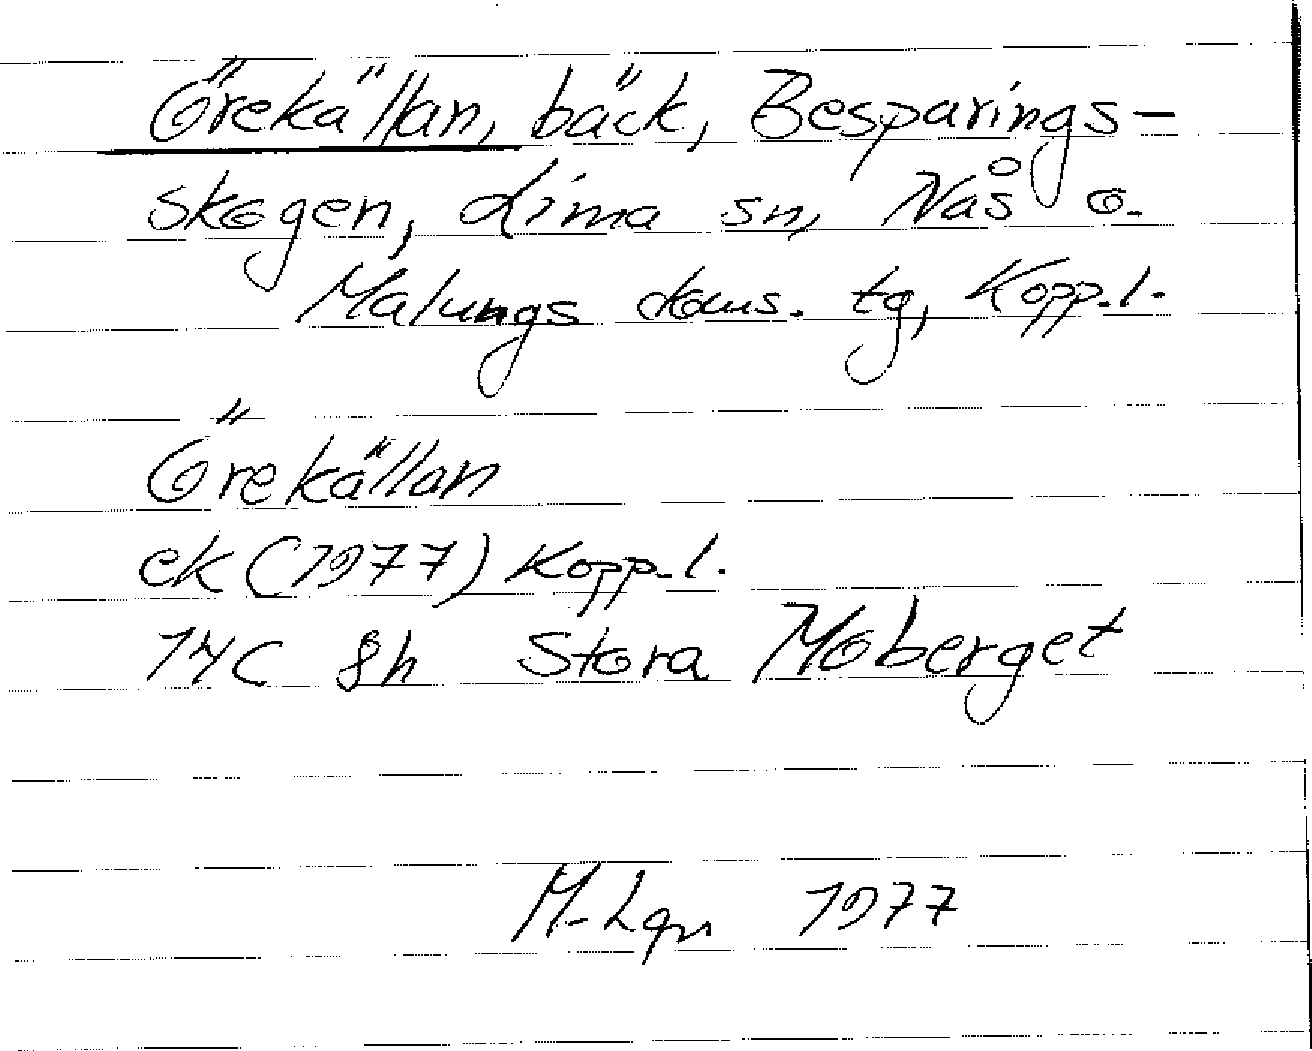 Örekällan, bäck, Besparings-
skogen, Lima sn, Nås o.
Malungs doms. tg, Kopp.l.
Örekällan
ek (1977) Kopp.l.
14C 8h Stora Moberget
M-Lgn 1977